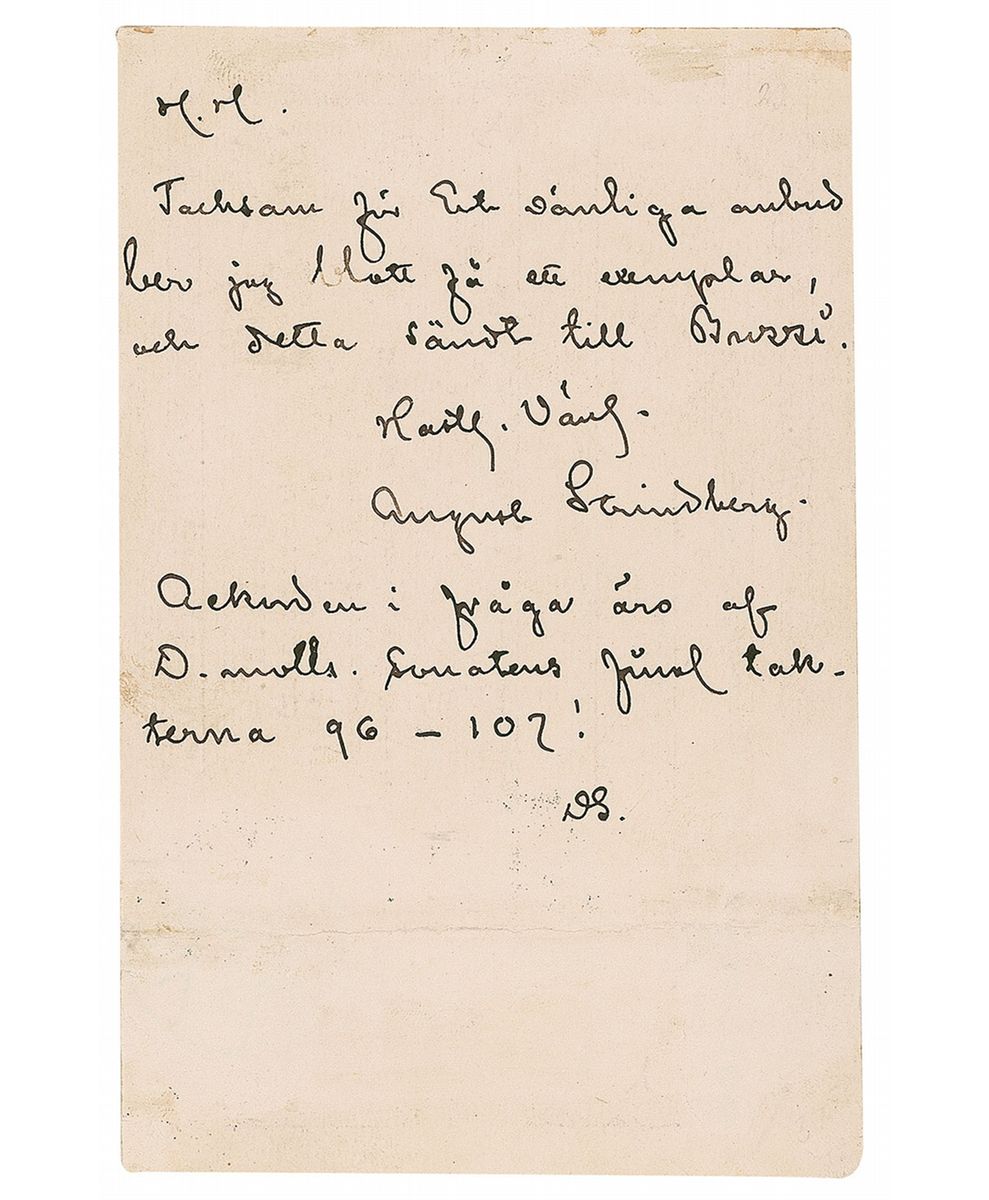 H. H.
Tacksam för Ert vänliga anbud
ber jag blott få ett exemplar,
och detta sändt till Bussi.
Hastl. Vänl.
August Strindberg.
Ackorden i fråga äro af
D-molls. Sonatens final tak-
terna 96 – 107!
DS.